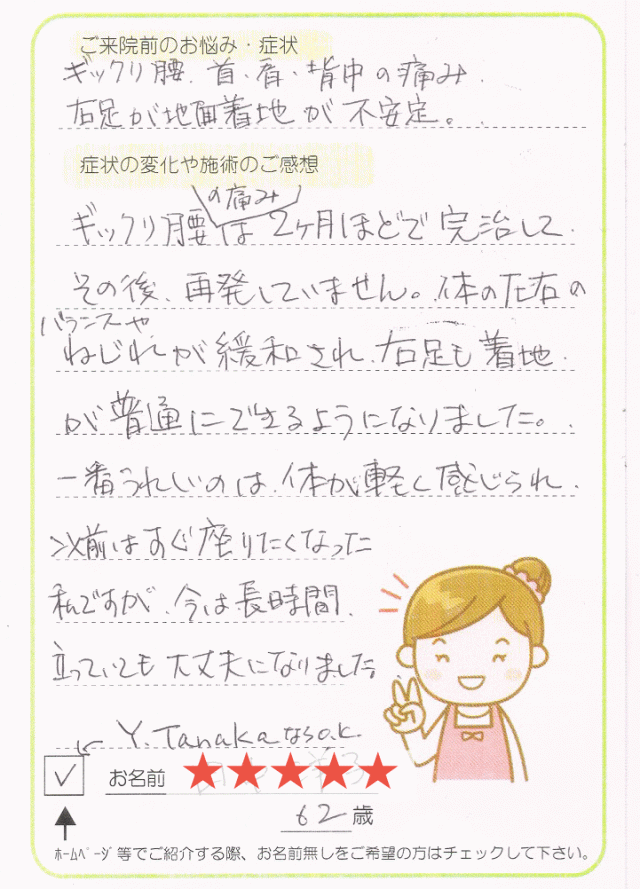 ご来院前のお悩み・症状
ギックリ腰、首、肩、背中の痛み、
右足が地面着地が不安定。
症状の変化や施術のご感想
の痛み
ギックリ腰は2ヶ月ほどで完治して
その後、再発していません。体の左右の
バランスや
ねじれが緩和され、右足も着地
が普通にできるようになりました。
一番うれしいのは、体が軽く感じられ、
以前はすぐ座りたくなった
私ですが、今は長時間
立っていても大丈夫になりました。
Y.Tanakaならo.k.
✓ お名前 ★★★★★
62歳
ホームページ等でご紹介する際、お名前無しをご希望の方はチェックして下さい。